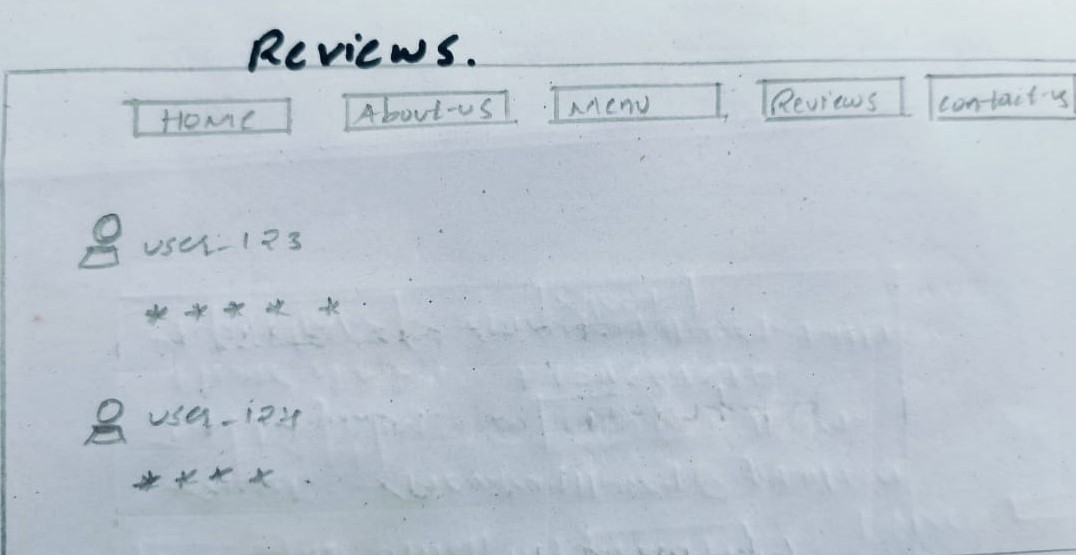 Reviews.
HOME About-us Menu Reviews contact-us
user_123
* * * * *
user_124
* * * *